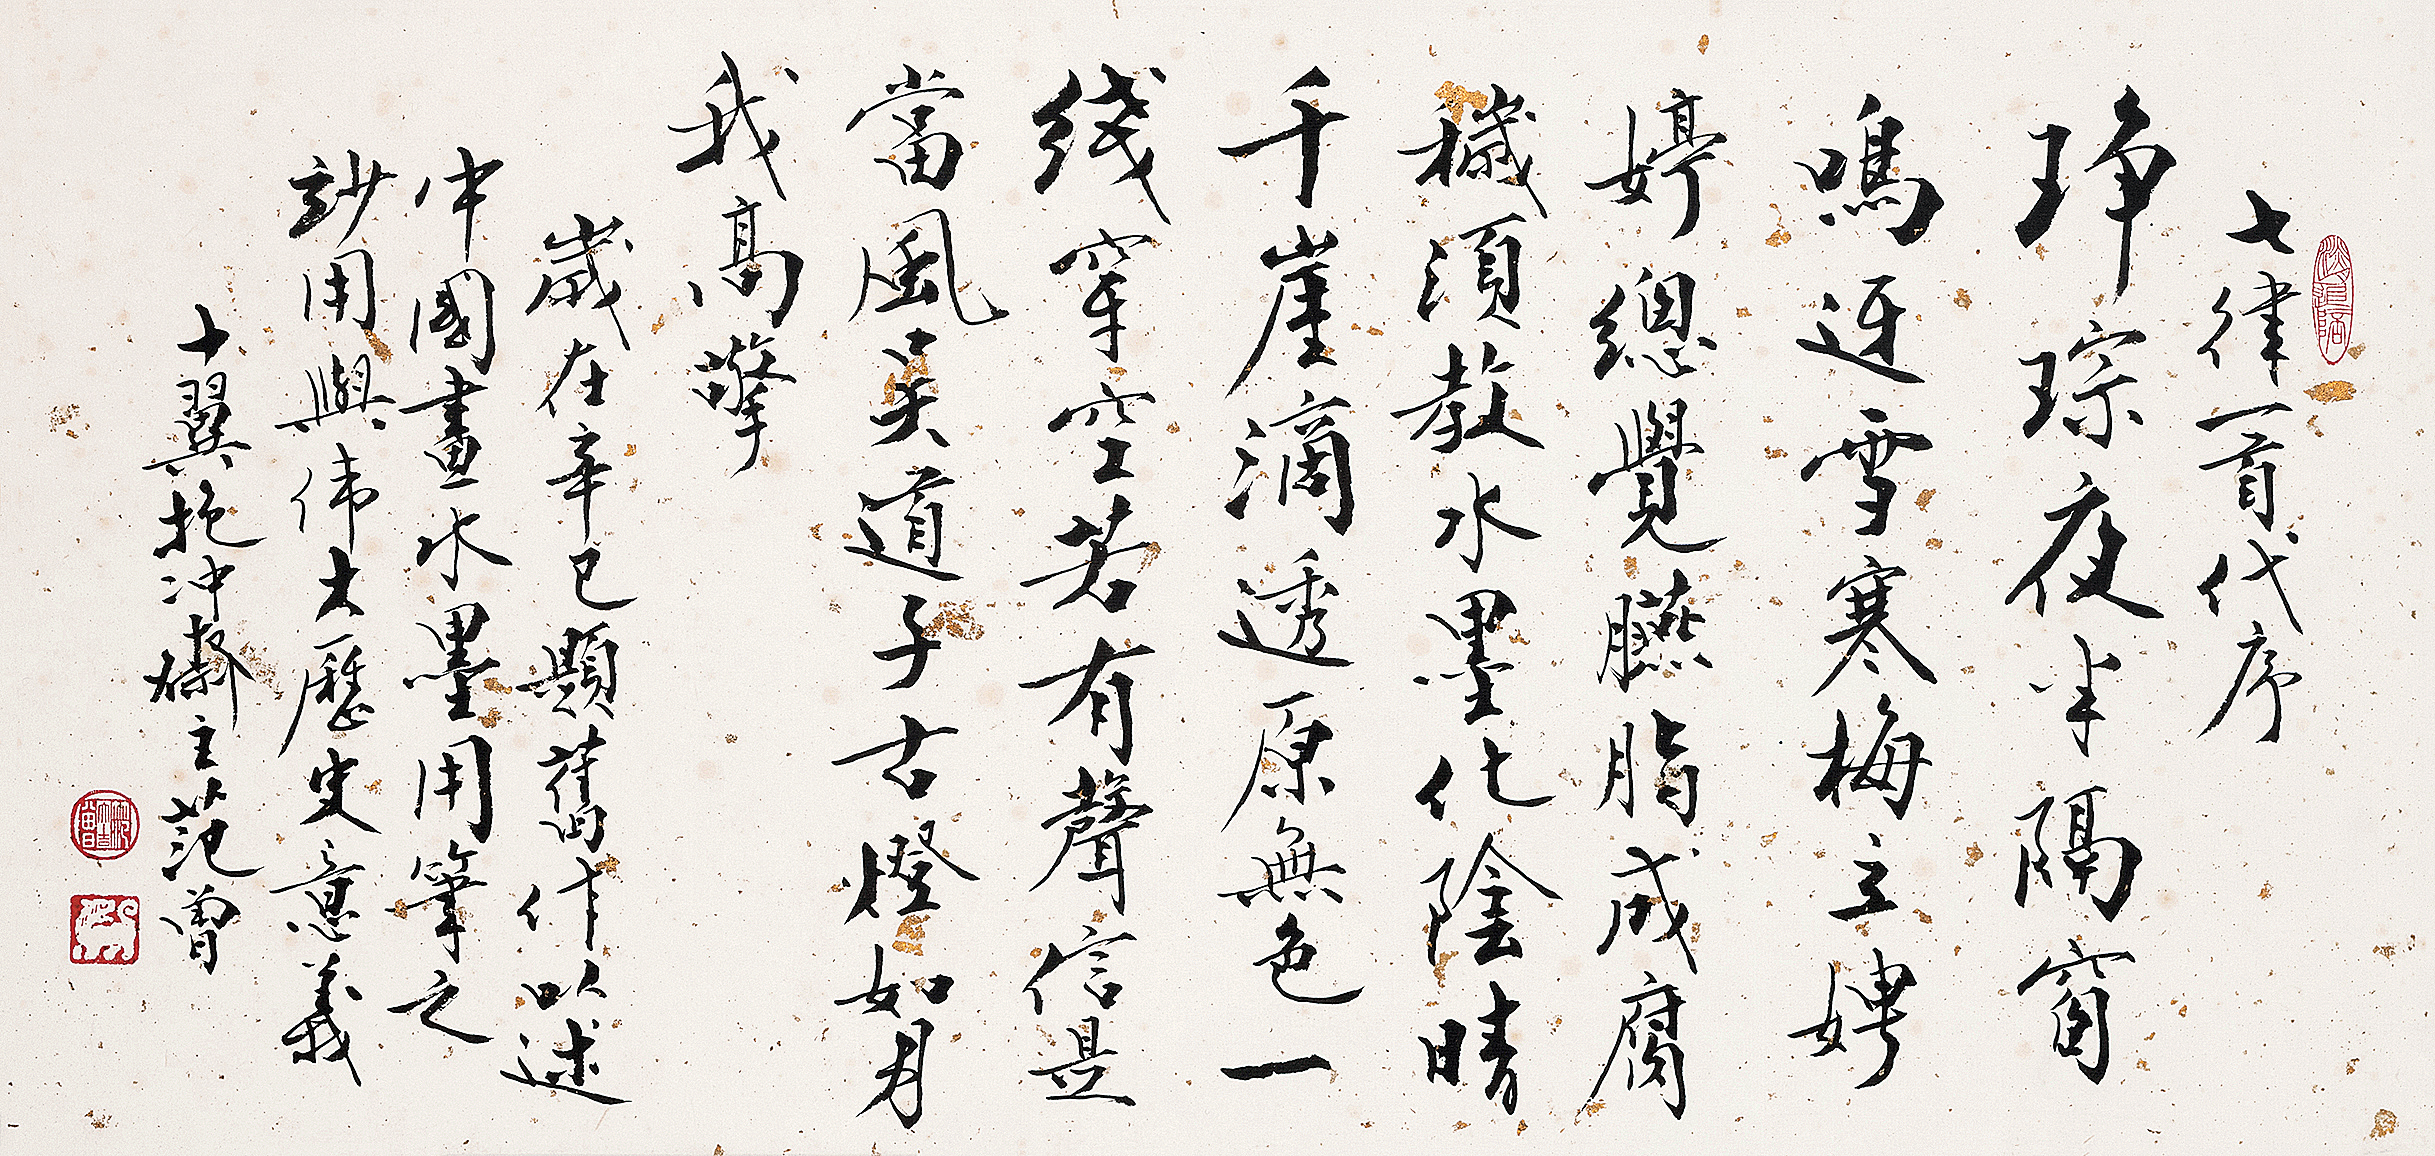 七律一首代序
琤琮夜半隔窗
鳴迓雪寒梅立娉
婷總覺臙脂成腐
穢須教水墨化陰晴
千崖滴透原無色一
线穿空若有聲信是
當風吴道子古燈如月
我高擎
歲在辛巳題舊作以述
中國畫水墨用筆之
妙用與偉大歷史意義
十翼抱冲齋主范曾